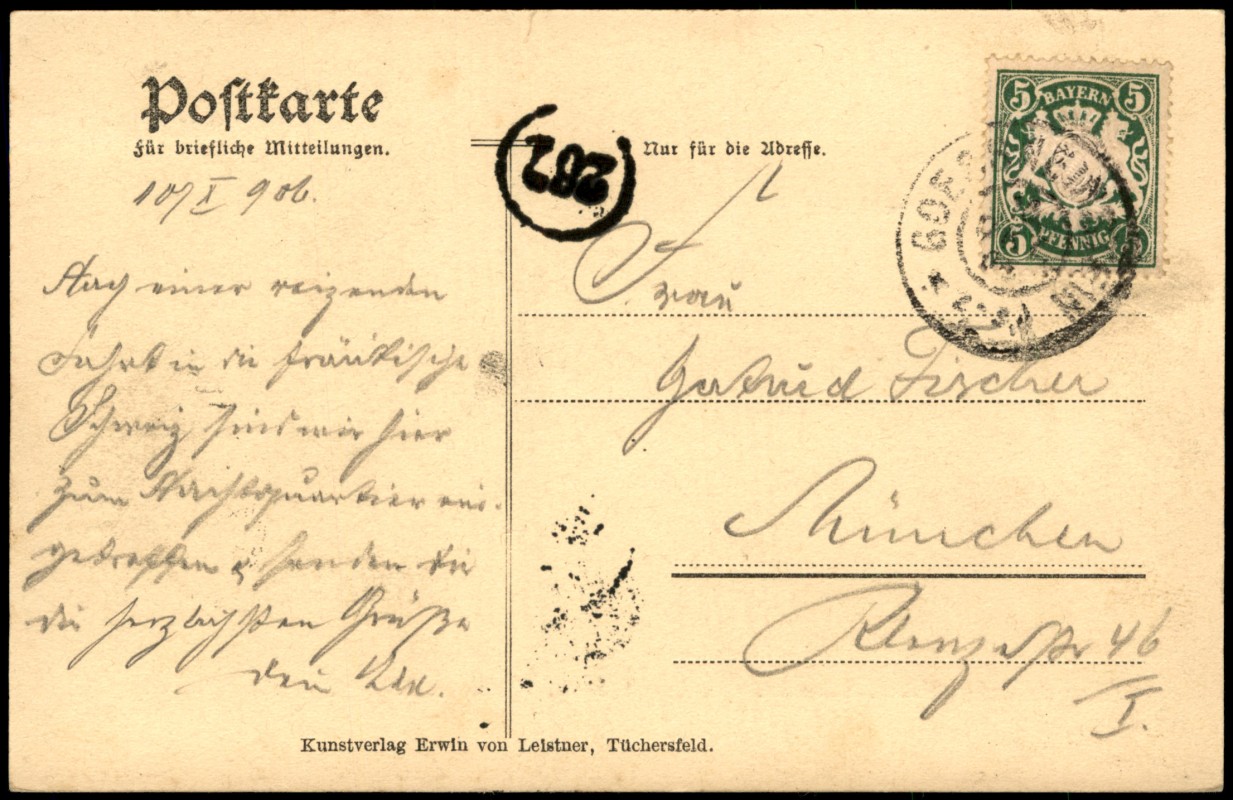 Postkarte
Für briefliche Mitteilungen.
Nur für die Adresse.
287
BAYERN
5 5
5 5
PFENNIG
906.
Nach einer reizenden
Fahrt in die fränkische
Schweiz sind wir hier
zum Nachtquartier ein-
getroffen & senden dir
die herzlichsten Grüße
dein
Frau
Gertrud Fischer
München
Klenzestr 46
I.
Kunstverlag Erwin von Leistner, Tüchersfeld.